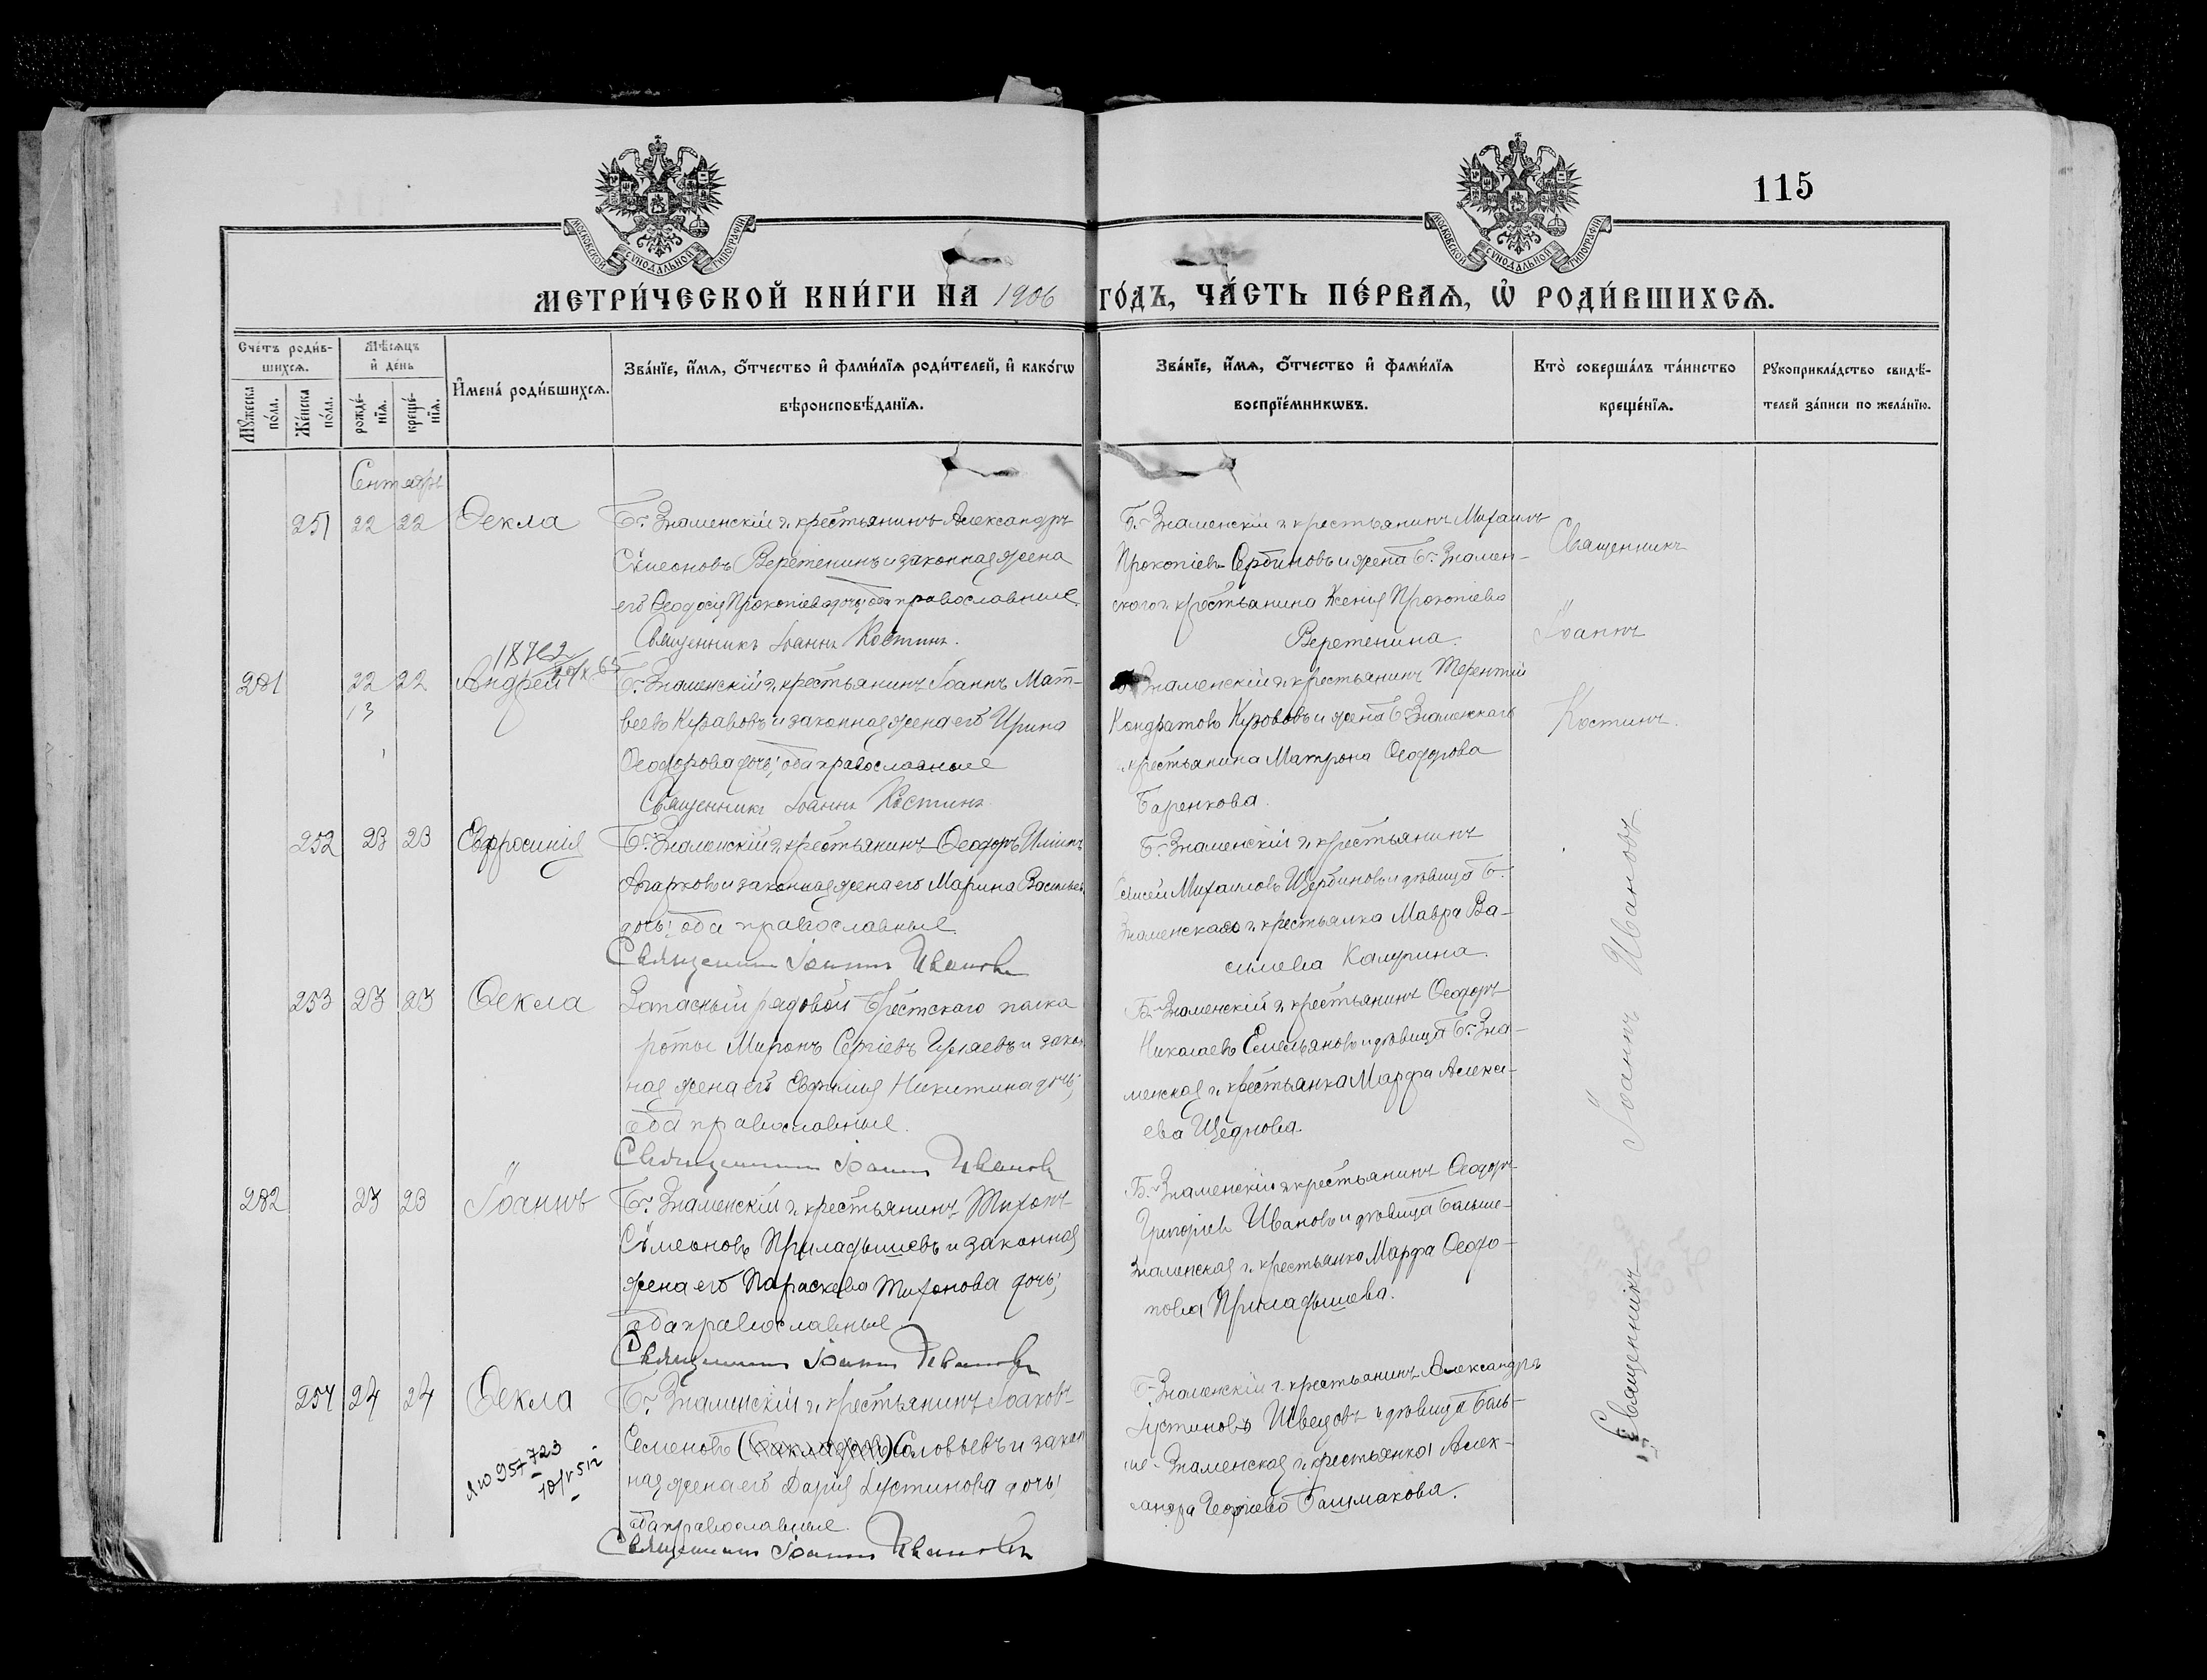 115
МОСКОВСКОЙ СѴНОДАЛЬНОЙ ТИПОГРАФІИ
МОСКОВСКОЙ СѴНОДАЛЬНОЙ ТИПОГРАФІИ
МЕТРИ́ЧЕСКОЙ КНИ́ГИ НА 1906 ГО́ДЪ, ЧА́СТЬ ПЕ́РВАѦ, Ѡ҆ РОДИ́ВШИХСѦ.
Сче́тъ роди́в-
шихсѧ.
Мꙋ́жеска
по́ла.
Же́нска
по́ла.
Мѣ́сѧцъ
и҆ де́нь
рожде́-
нїѧ.
креще́-
нїѧ.
И҆мена̀ роди́вшихсѧ.
Зва́нїе, и҆́мѧ, ѻ҆́тчество и҆ фами́лїѧ роди́телей, и҆ како́гѡ
вѣроисповѣ́данїѧ.
Зва́нїе, и҆́мѧ, ѻ҆́тчество и҆ фами́лїѧ
воспрїе́мникѡвъ.
Кто̀ соверша́лъ та́инство
креще́нїѧ.
Рꙋкоприкла́дство свидѣ́-
телей за́писи по жела́нїю.
Сентябрь
251 22 22 Ѳекла
Б. Знаменскій г. крестьянинъ Александръ
Сѵмеоновъ Веретенинъ и законная жена
его Ѳеодосія Прокопіева дочь; оба православные.
Священникъ Іоаннъ Костинъ.
Б. Знаменскій г. крестьянинъ Михаилъ
Прокопіевъ Сербиновъ и жена Б. Знамен-
скаго г. крестьянина Ксенія Прокопіева
Веретенина.
281 22 22 Андрей
13
Б. Знаменскій г. крестьянинъ Іоаннъ Мат-
веевъ Кузововъ и законная жена его Ирина
Ѳеодорова дочь; оба православные
Священникъ Іоаннъ Костинъ
Знаменскій г. крестьянинъ Терентій
Кондратовъ Кузововъ и жена Б. Знаменскаго
г. крестьянина Матрона Ѳеодорова
Баренкова.
252 23 23 Евфросинія
Б. Знаменскій г. крестьянинъ Ѳеодоръ Илиинъ
Агарковъ и законная жена его Марина Васильева
дочь; оба православные
Священникъ Іоаннъ Ивановъ
Б. Знаменскій г. крестьянинъ
Михаиловъ Щербиновъ и дѣвица Б.
Знаменская г. крестьянка Мавра Ва-
силиева
253 23 23 Ѳекла
Запасный рядовой Брестскаго полка
роты Миронъ Сергіевъ и закон
ная жена его Евфимія Никитина дочь;
оба православные.
Священникъ Іоаннъ Ивановъ
Б. Знаменскій г. крестьянинъ Ѳеодоръ
Николаевъ Емельяновъ и дѣвица Б. Зна-
менская г. крестьянка Марфа Алекси-
ева
282 23 23 Іоаннъ
Б. Знаменскій г. крестьянинъ Тихонъ
Сѵмеоновъ Приладышевъ и законная
жена его Параскева Тихонова дочь;
оба православные
Священникъ Іоаннъ Ивановъ
Б. Знаменскій г. крестьянинъ Ѳеодоръ
Григоріевъ Ивановъ и дѣвица Больше-
Знаменская г. крестьянка Марфа
Приладышева.
254 24 24 Ѳекла
Б. Знаменскій г. крестьянинъ Іаковъ
Семеновъ Соловьевъ и закон
ная жена его Дарія Іустинова дочь;
оба православные.
Священникъ Іоаннъ Ивановъ
Б. Знаменскій г. крестьянинъ Александръ
Іустиновъ Швецовъ и дѣвица Боль-
ше-Знаменская г. крестьянка Алек-
сандра Георгіева Башмакова.
Священникъ
Іоаннъ
Костинъ.
Священникъ Іоаннъ Ивановъ